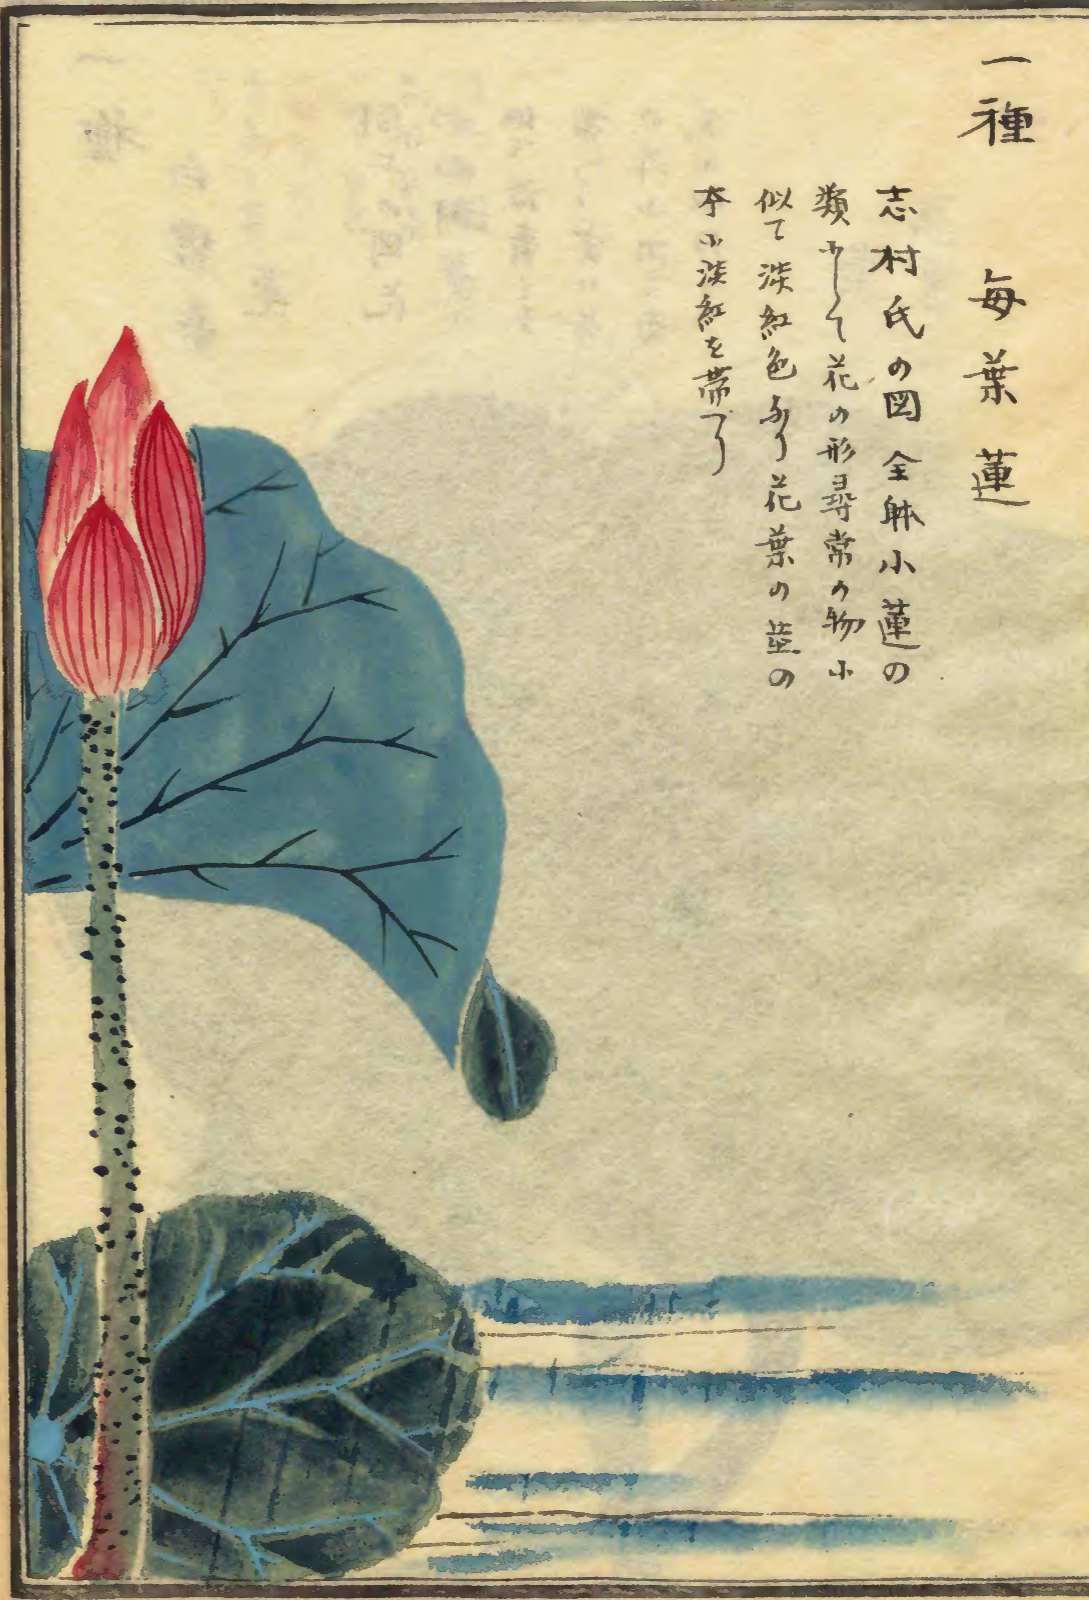 一種 毎葉蓮
志村氏の図全躰小蓮の
類小して花の形尋常の物小
似て淡紅色あり花葉の莖の
本小淡紅を帯つり